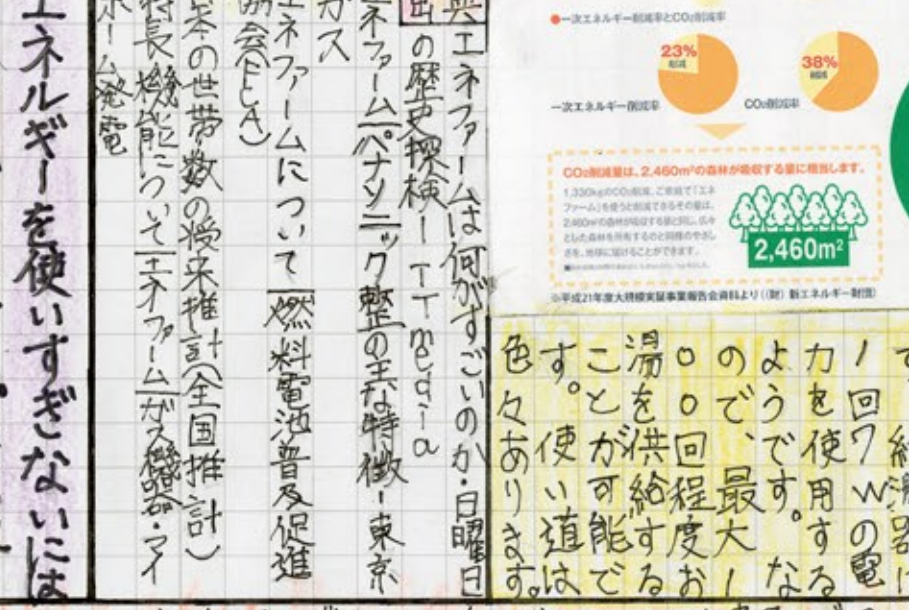 ●一次エネルギー削減率とCO₂削減率
23%
削減
38%
削減
一次エネルギー削減率
CO₂削減率
CO₂削減量は、2,460m²の森林が吸収する量に相当します。
1,330kgのCO₂削減。ご家庭で「エネ
ファーム」を使うと削減できるその量は、
2,460m²の森林が吸収する量と同じ。広々
とした森林を所有するのと同様のやさし
さを、地球に届けることができます。
2,460m²
※平成21年度大規模実証事業報告会資料より((財)新エネルギー財団)
1回7Wの電
力を使用する
ようです。な
ので、最大1
00回程度お
湯を供給する
ことが可能で
す。使い道は
色々あります。
典 エネファームは何がすごいのか・日曜日
出 の歴史探検ーITmedia
エネファーム|パナソニック 整の主な特徴-東京
ガス
エネファームについて|燃料電池普及促進
協会(FCA)
本の世帯数の将来推計(全国推計)
特長 機能について|エネファーム|ガス機器・マイ
ホーム発電
エネルギーを使いすぎないには